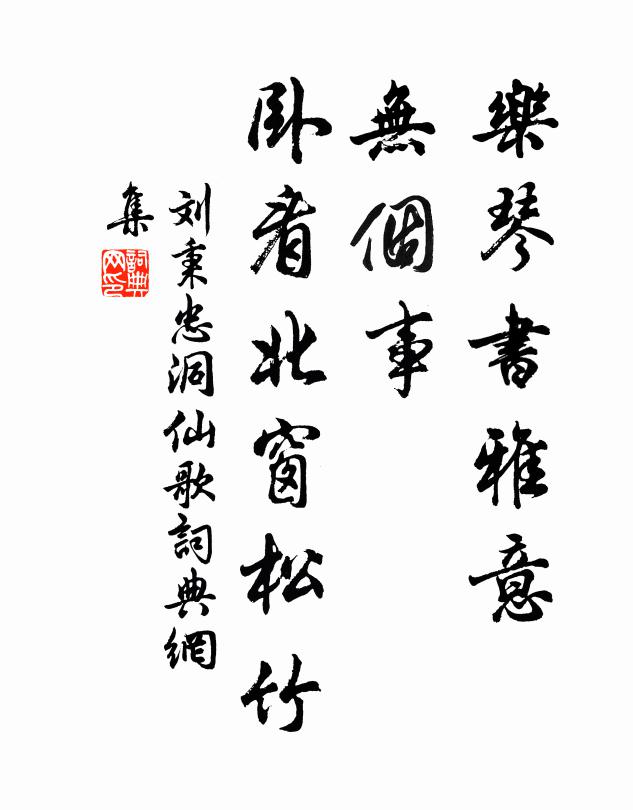 樂琴書雅意
無個事
卧看北窗松竹
刘秉忠洞仙歌詞典網
集
詞典
网印